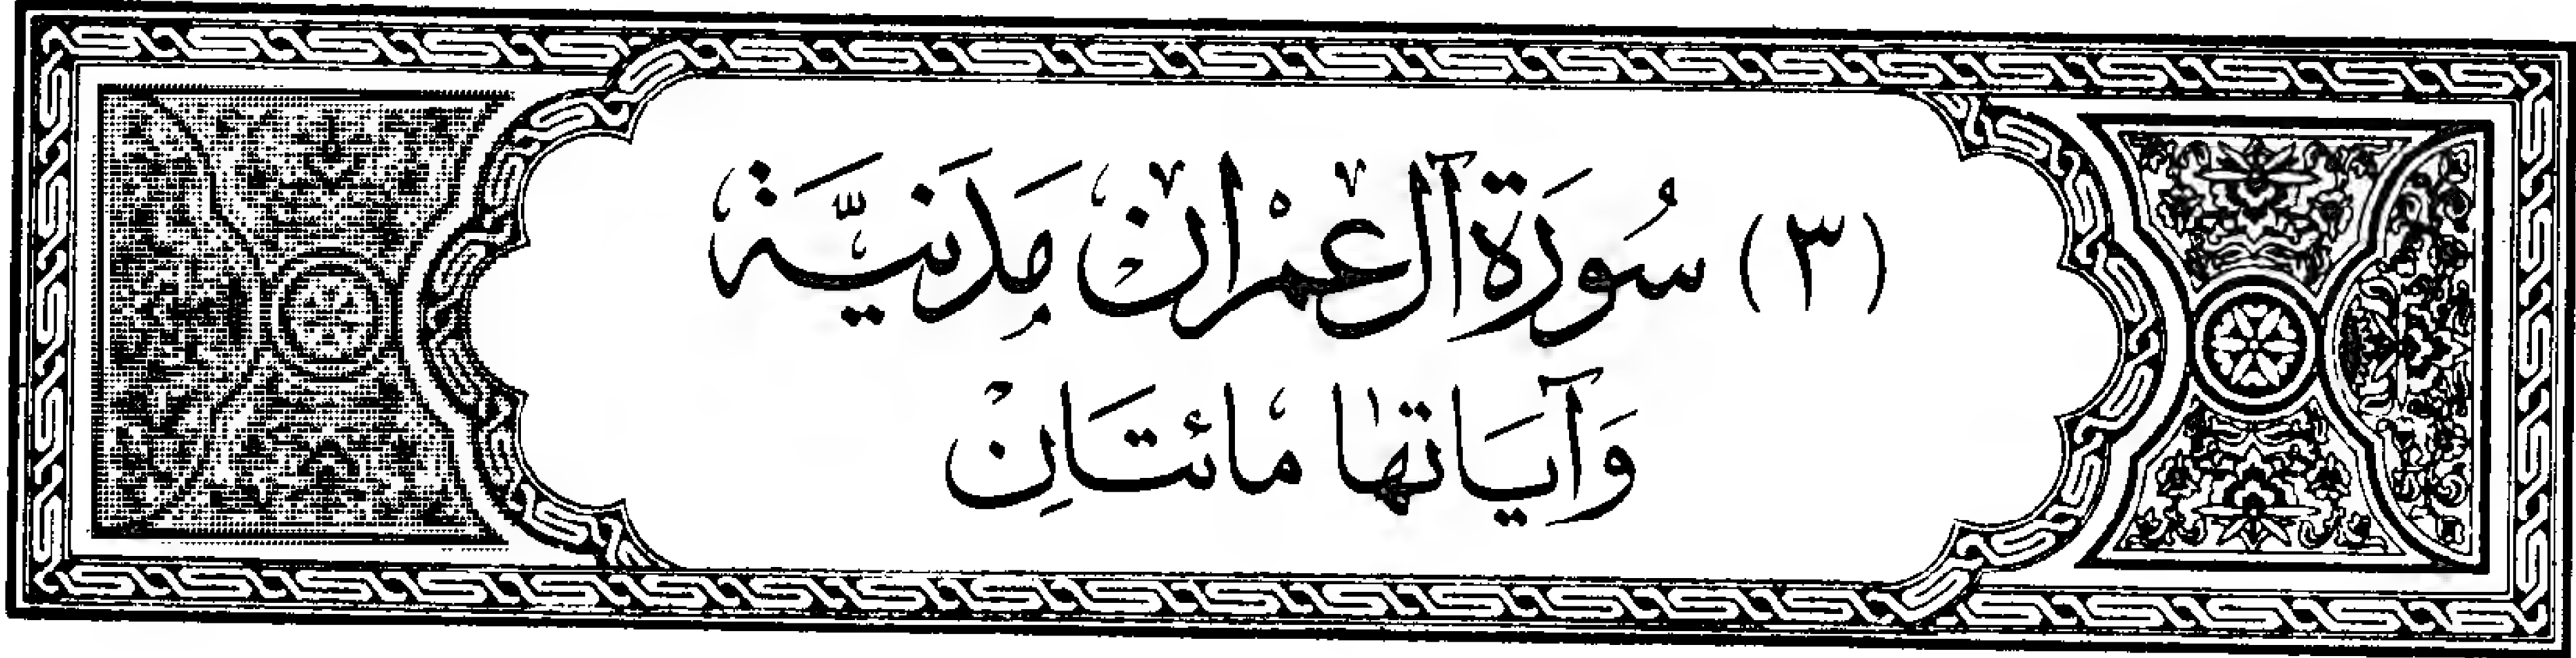 (٣) سُورَة آل عِمْرَان مَدَنيَّة
وَآيَاتهَا مائتَانِ